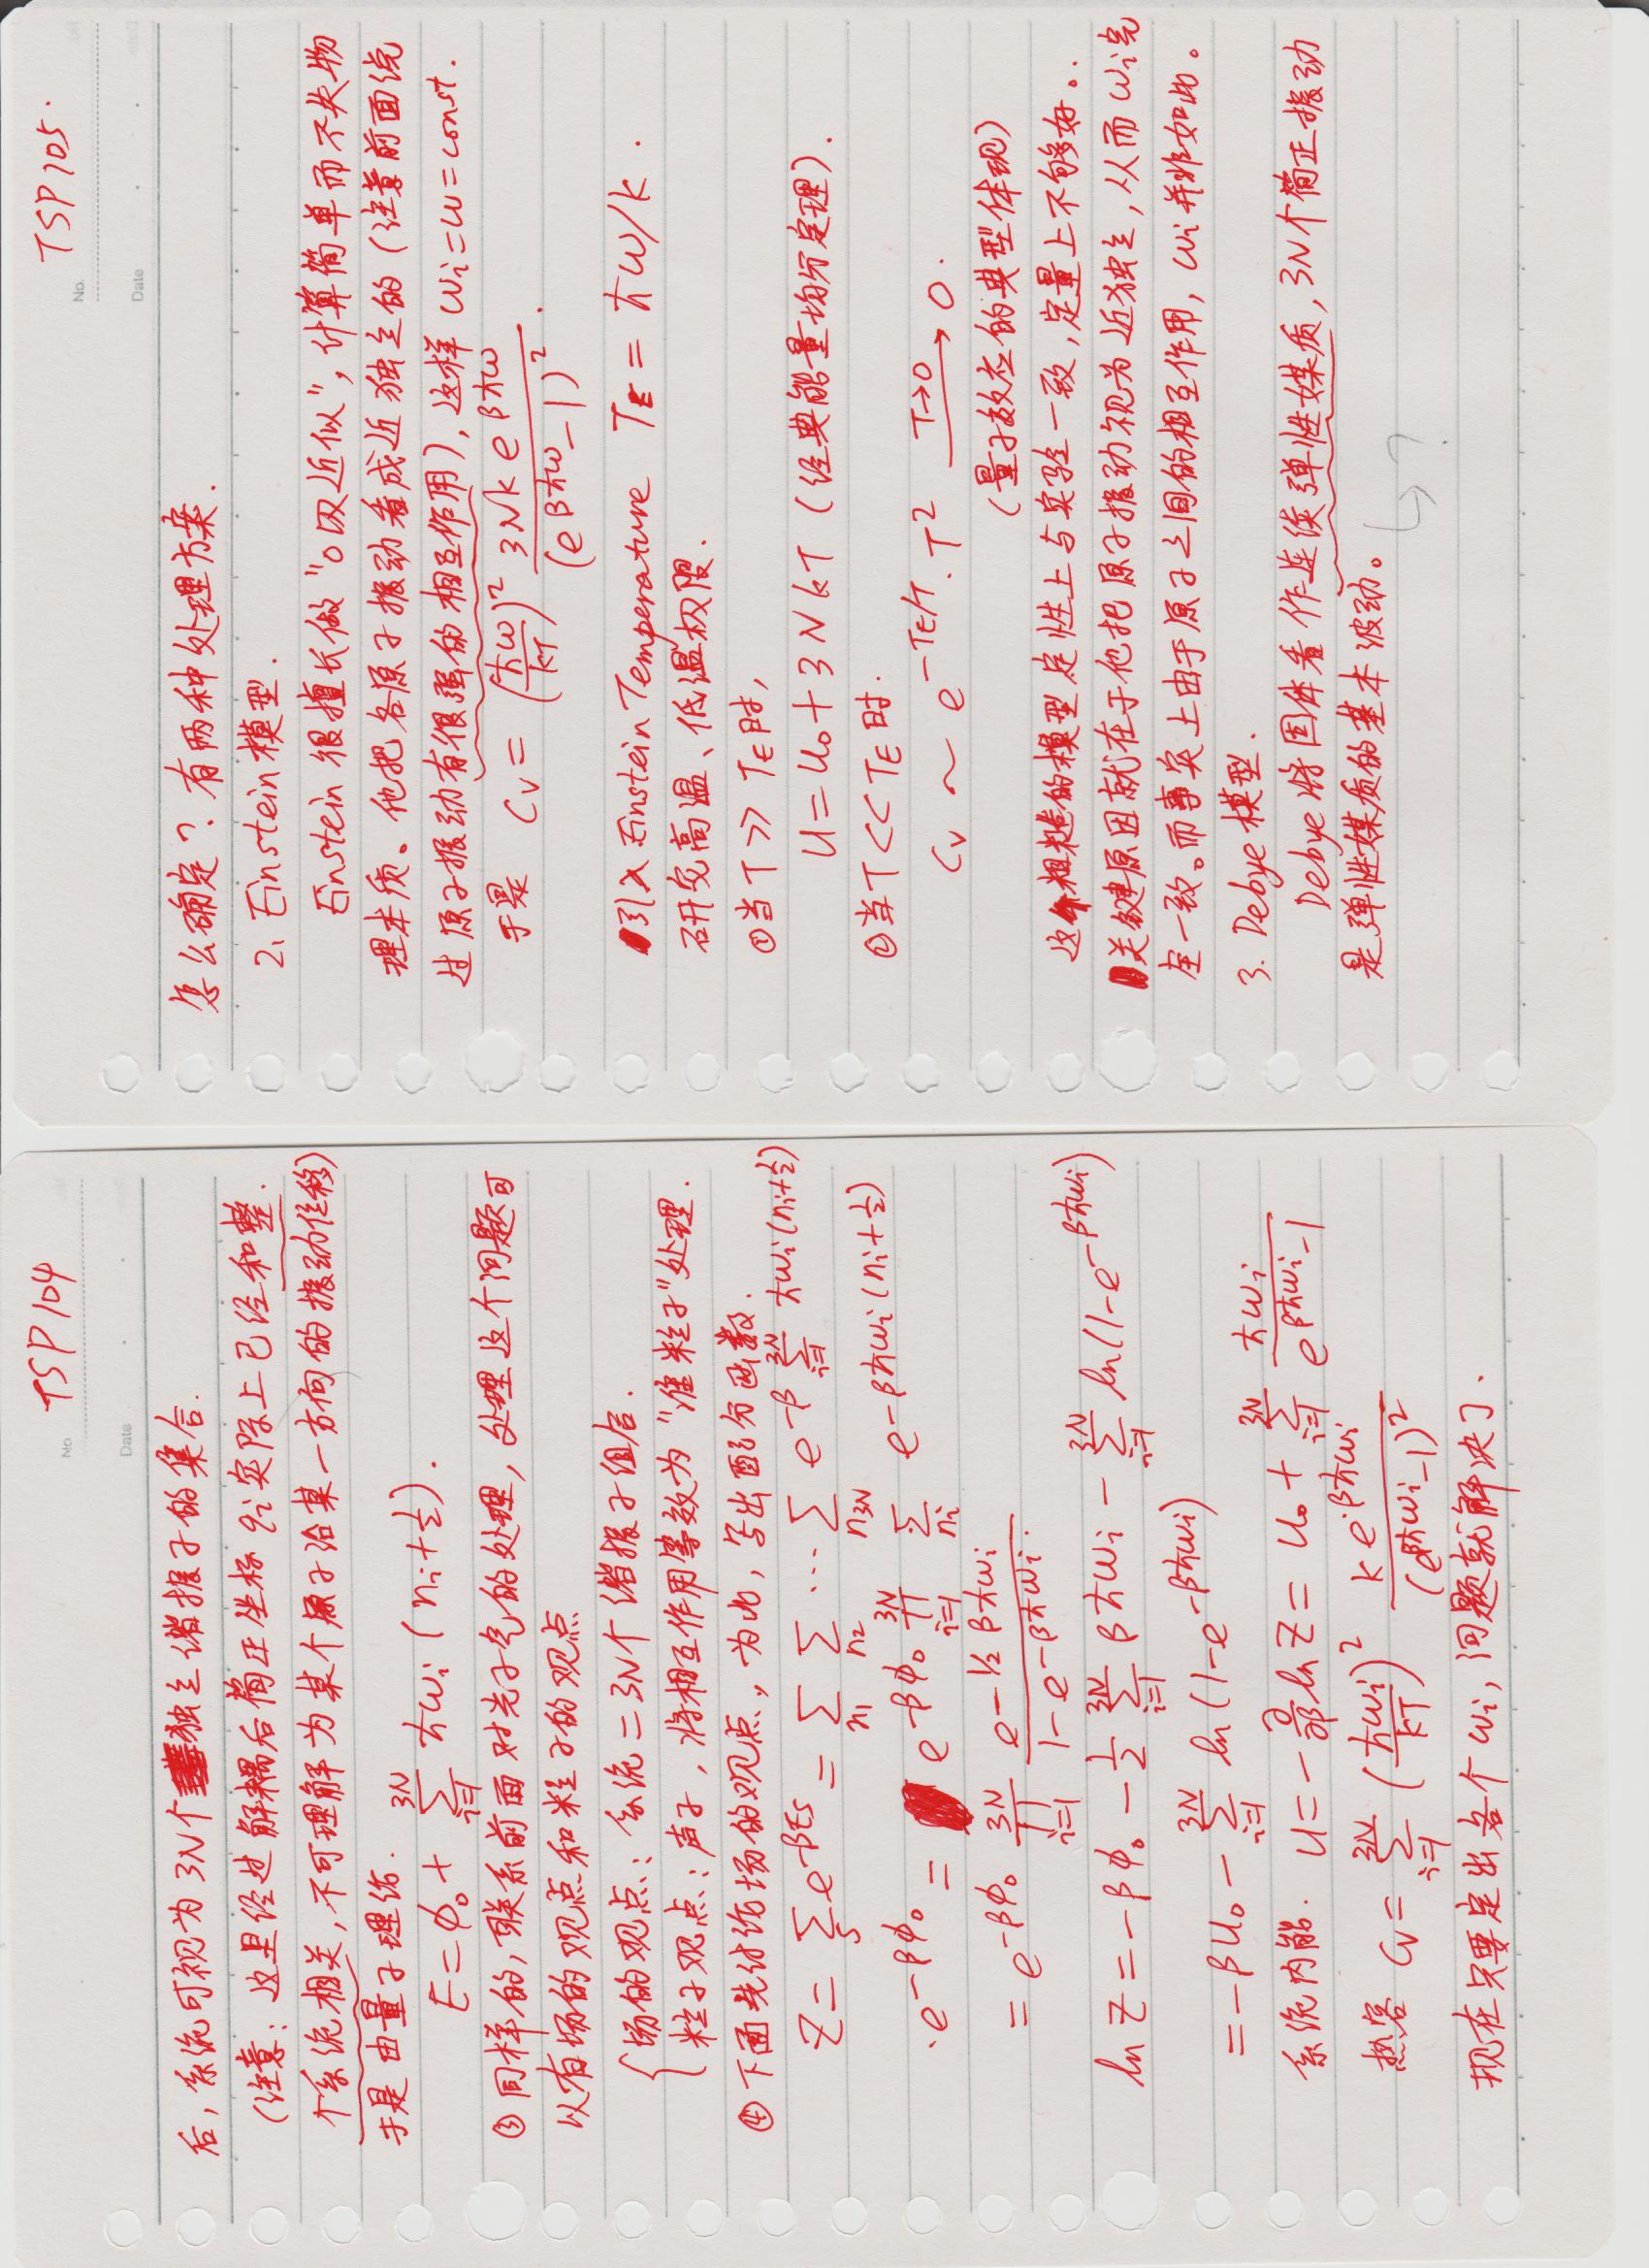 No. TSP 104
Date
后,系统可视为3N个独立谐振子的集合.
(注意:这里经过解耦后简正坐标 qᵢ实际上已经和整
个系统相关,不可理解为某个原子沿某一方向的振动位移)
于是由量子理论.
E = ϕ₀ + Σ_{i=1}^{3N} ħωᵢ (nᵢ+½).
③ 同样的,联系前面对光子气的处理,处理这个问题可
以有场的观点和粒子的观点
{ 场的观点:系统=3N个谐振子组合.
粒子观点:声子,将相互作用等效为"准粒子"处理.
④ 下面先讨论场的观点,为此,写出配分函数.
Z = Σ_s e^{-βEs} = Σ_{n₁} Σ_{n₂} ⋯ Σ_{n3N} e^{-β Σ_{i=1}^{3N} ħωᵢ(nᵢ+½)}
·e^{-βϕ₀} = e^{-βϕ₀} ∏_{i=1}^{3N} Σ_{nᵢ} e^{-βħωᵢ(nᵢ+½)}
= e^{-βϕ₀} ∏_{i=1}^{3N} \frac{e^{-1/2 βħωᵢ}}{1-e^{-βħωᵢ}}.
ln Z = -βϕ₀ - ½ Σ_{i=1}^{3N} βħωᵢ - Σ_{i=1}^{3N} ln(1-e^{-βħωᵢ})
= -βU₀ - Σ_{i=1}^{3N} ln(1-e^{-βħωᵢ})
系统内能. U = -\frac{∂}{∂β} ln Z = U₀ + Σ_{i=1}^{3N} \frac{ħωᵢ}{e^{βħωᵢ}-1}
热容 Cv = Σ_{i=1}^{3N} (\frac{ħωᵢ}{kT})² \frac{k e^{βħωᵢ}}{(e^{βħωᵢ}-1)²}
现在只要定出各个ωᵢ,问题就解决了.
No. TSP 105.
Date
怎么确定?有两种处理方案.
2. Einstein模型.
Einstein 很擅长做"0级近似",计算简单而不失物
理本质。他把各原子振动看成近独立的(注意前面说
过原子振动有很强的相互作用),这样 ωᵢ=ω=const.
于是 Cv = (\frac{ħω}{kT})² \frac{3Nk e^{βħω}}{(e^{βħω}-1)²}.
引入 Einstein Temperature T_E = ħω/k.
研究高温、低温极限.
① 当T >> T_E时,
U = U₀ + 3NkT (经典能量均分定理).
② 当T << T_E时.
Cv ~ e^{-T_E/T}·T² \xrightarrow{T→0} 0.
(量子效应的典型体现)
这个粗糙的模型定性上与实验一致,定量上不够好。.
关键原因就在于他把原子振动视为近独立,从而ωᵢ完
全一致。而事实上由于原子之间的相互作用,ωᵢ并非如此。
3. Debye模型.
Debye将固体看作连续弹性媒质,3N个简正振动
是弹性媒质的基本波动。
↳ ?